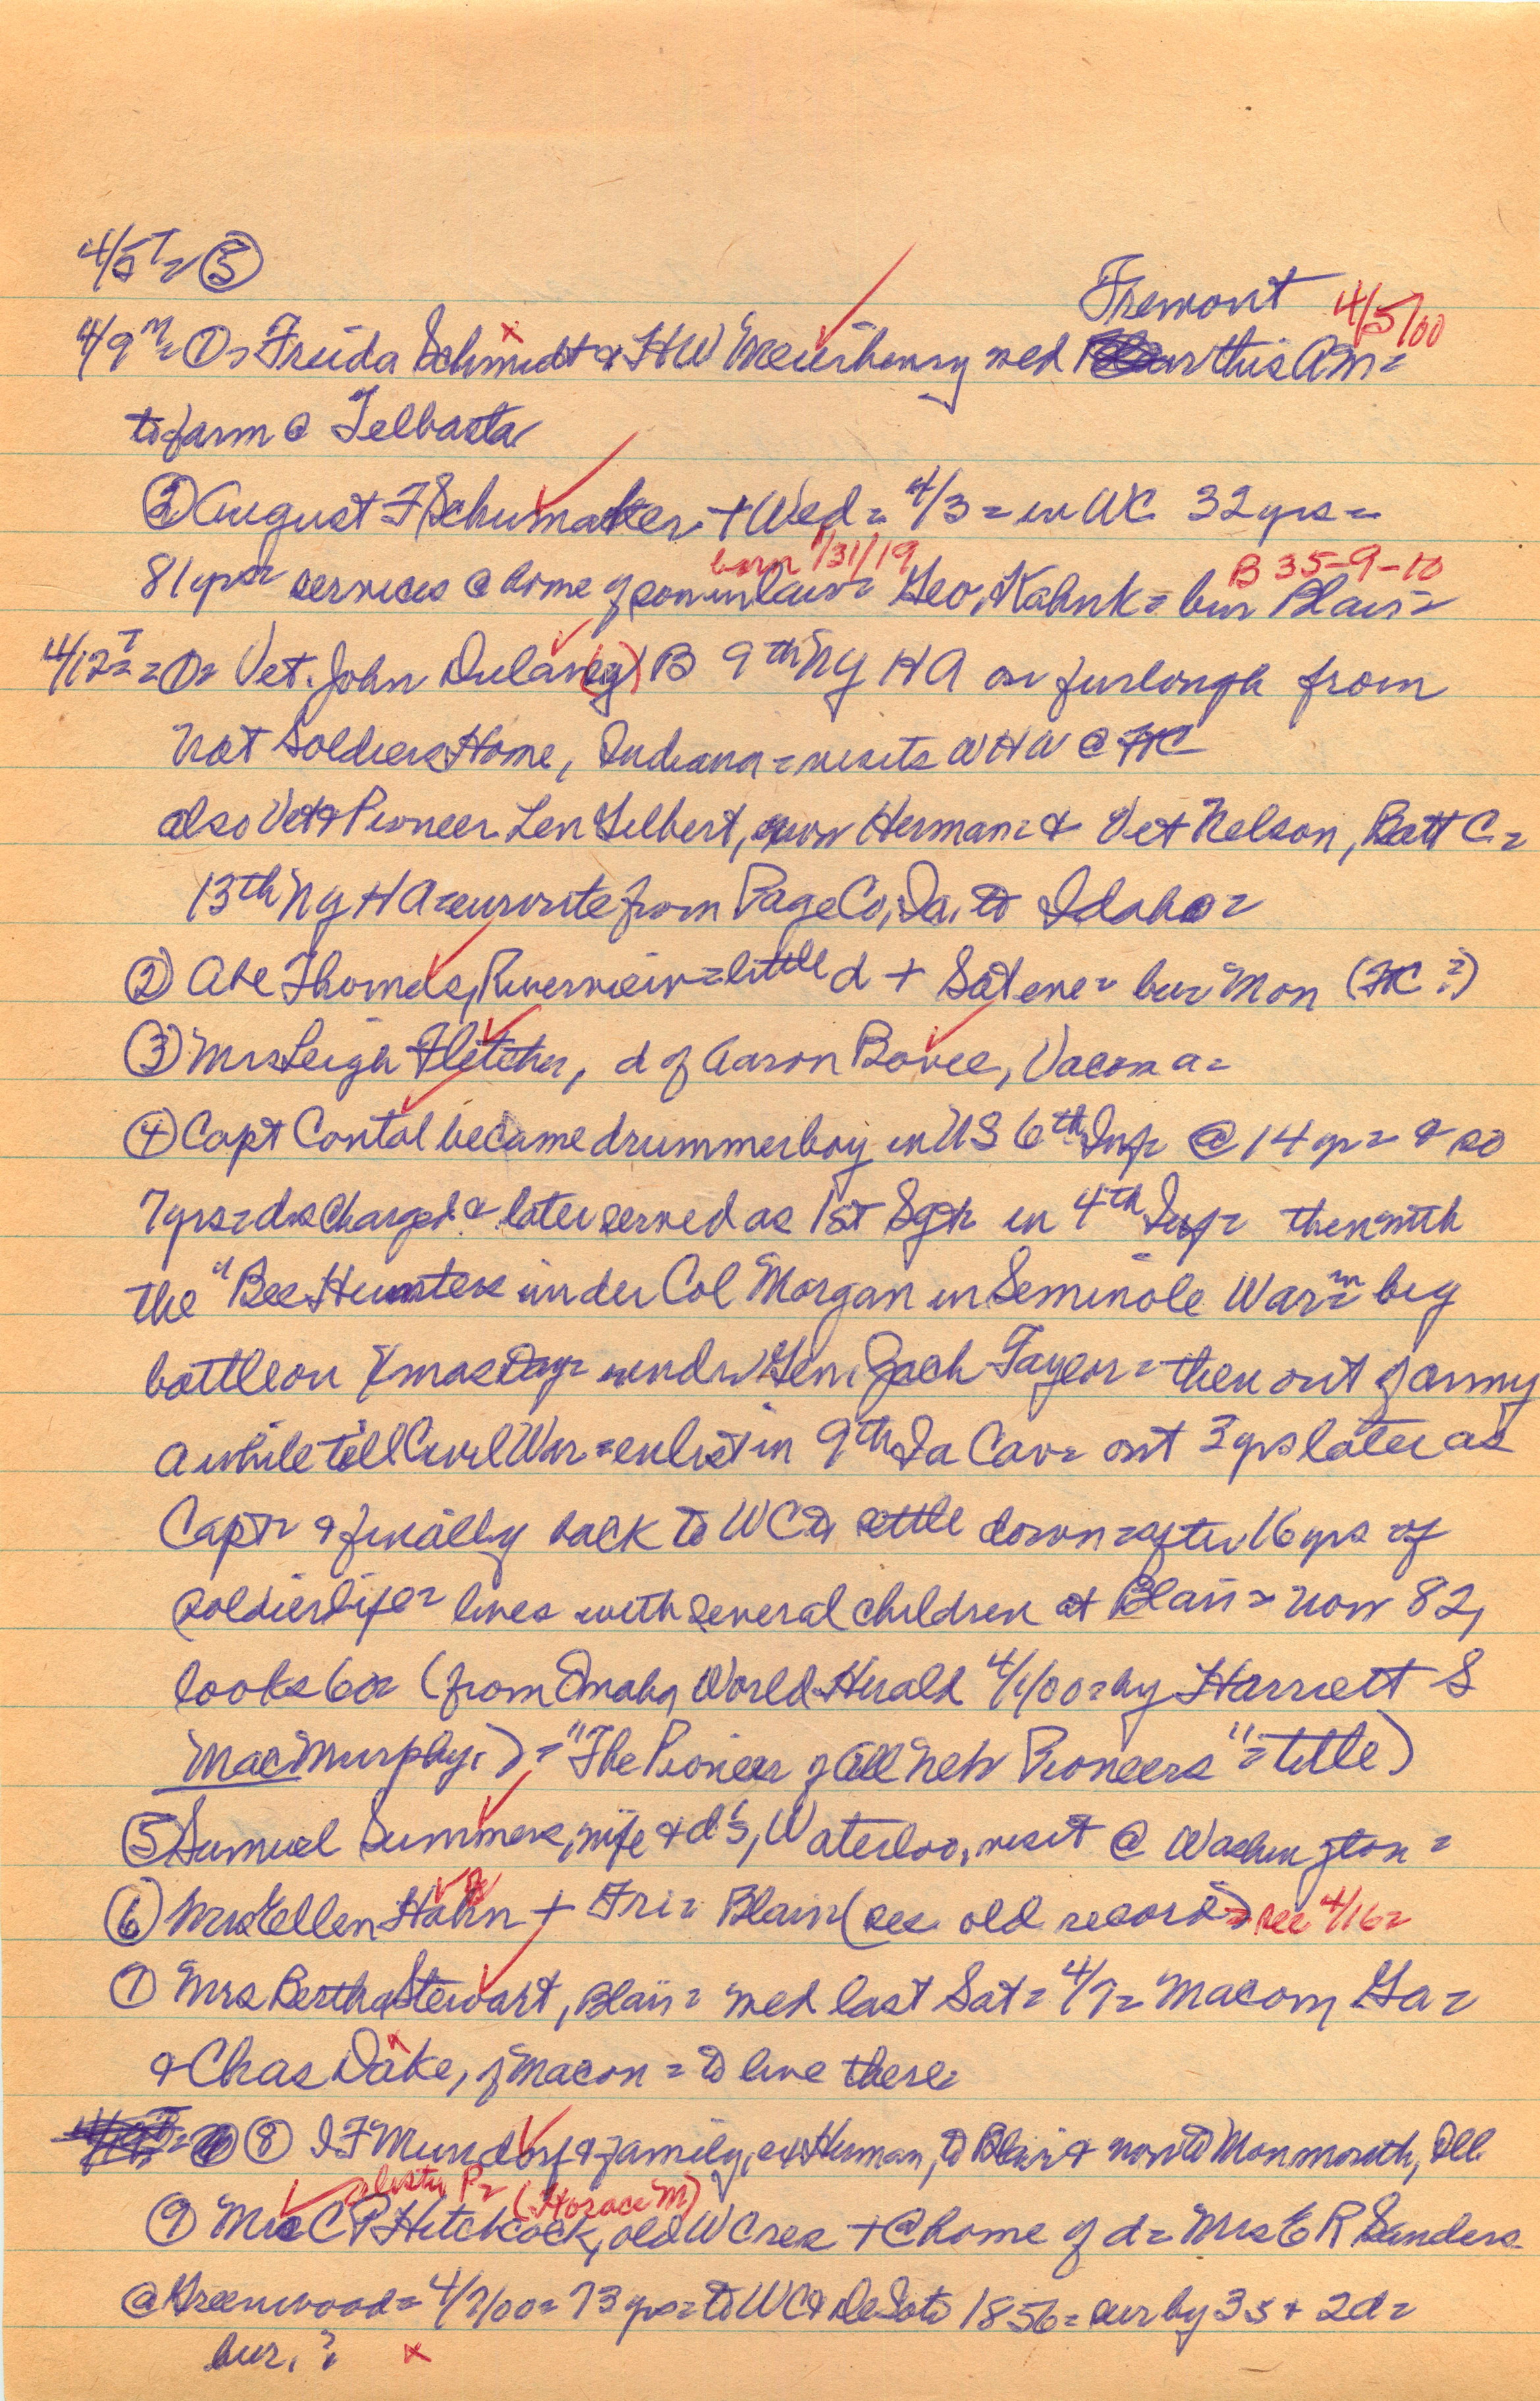 4/5T= ③
Fremont 4/5/00
4/9M= ①= Freida Schmidt & HW Meierhenry wed this AM=
to farm @ Telbasta
② August F Schumacker + Wed= 4/3= in WC 32 yrs=
born 1/31/19 B 35-9-10
81 yrs= services @ home of son in law= Geo. Kahnk= bur Blair=
4/12T= ①= Vet. John Dulan(ey) B 9th NY HA on furlough from
Nat Soldiers Home, Indiana= visits WHW @ FC
also Vet & Pioneer Len Gilbert, now Herman= & Vet Nelson, Batt C=
13th NY HA= enroute from Page Co, Ia. to Idaho=
② Abe Thomas, Riverview= little d + Sat eve= bur Mon (FC?)
③ Mrs Leigh Fletcher, d of Aaron Bovee, Vacoma=
④ Capt Contal became drummer boy in US 6th Inf= @ 14 yr= & so
7 yrs= discharged & later served as 1st Sgt= in 4th Inf= then with
the "Bee Hunters under Col Morgan in Seminole War= in big
battle on Xmas Day= under Gen. Zach Taylor= then out of army
a while till Civil War= enlist in 9th Ia Cav= out 3 yrs later as
Capt= & finally back to WC to settle down= after 16 yrs of
soldier life= lives with several children at Blair= now 82,
looks 60= (from Omaha World-Herald 4/1/00= by Harriett S
MacMurphy.)= "The Pioneer of All Neb Pioneers"= title)
⑤ Samuel Summers, wife & d's, Waterloo, visit @ Washington=
⑥ Mrs Ellen Hahn + Fri= Blair (see old record)= see 4/16=
⑦ Mrs Bertha Stewart, Blair= wed last Sat= 4/7= Macon, Ga=
& Chas Dake, of Macon= to live there
⑧ IF Mundorf & family, ex Herman, to Blair & now to Monmouth, Ill.
P= (Horace M)
⑨ Mrs CP Hitchcock, old WC res + @ home of d= Mrs ER Sanders
@ Greenwood= 4/7/00= 73 yrs= to WC & DeSoto 1856= sur by 3s + 2d=
bur. ? x